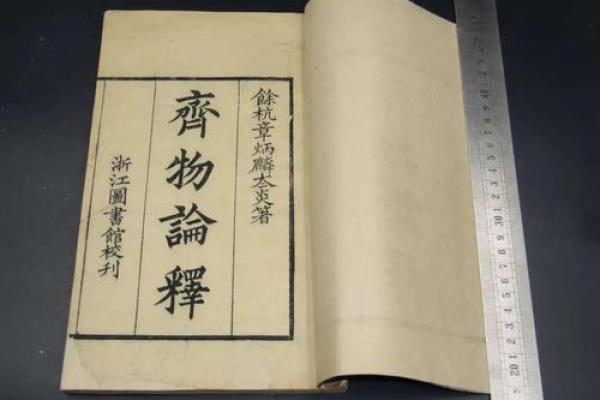 餘杭章炳麟夳炎箸
齊物論釋
浙江圖書館校刊